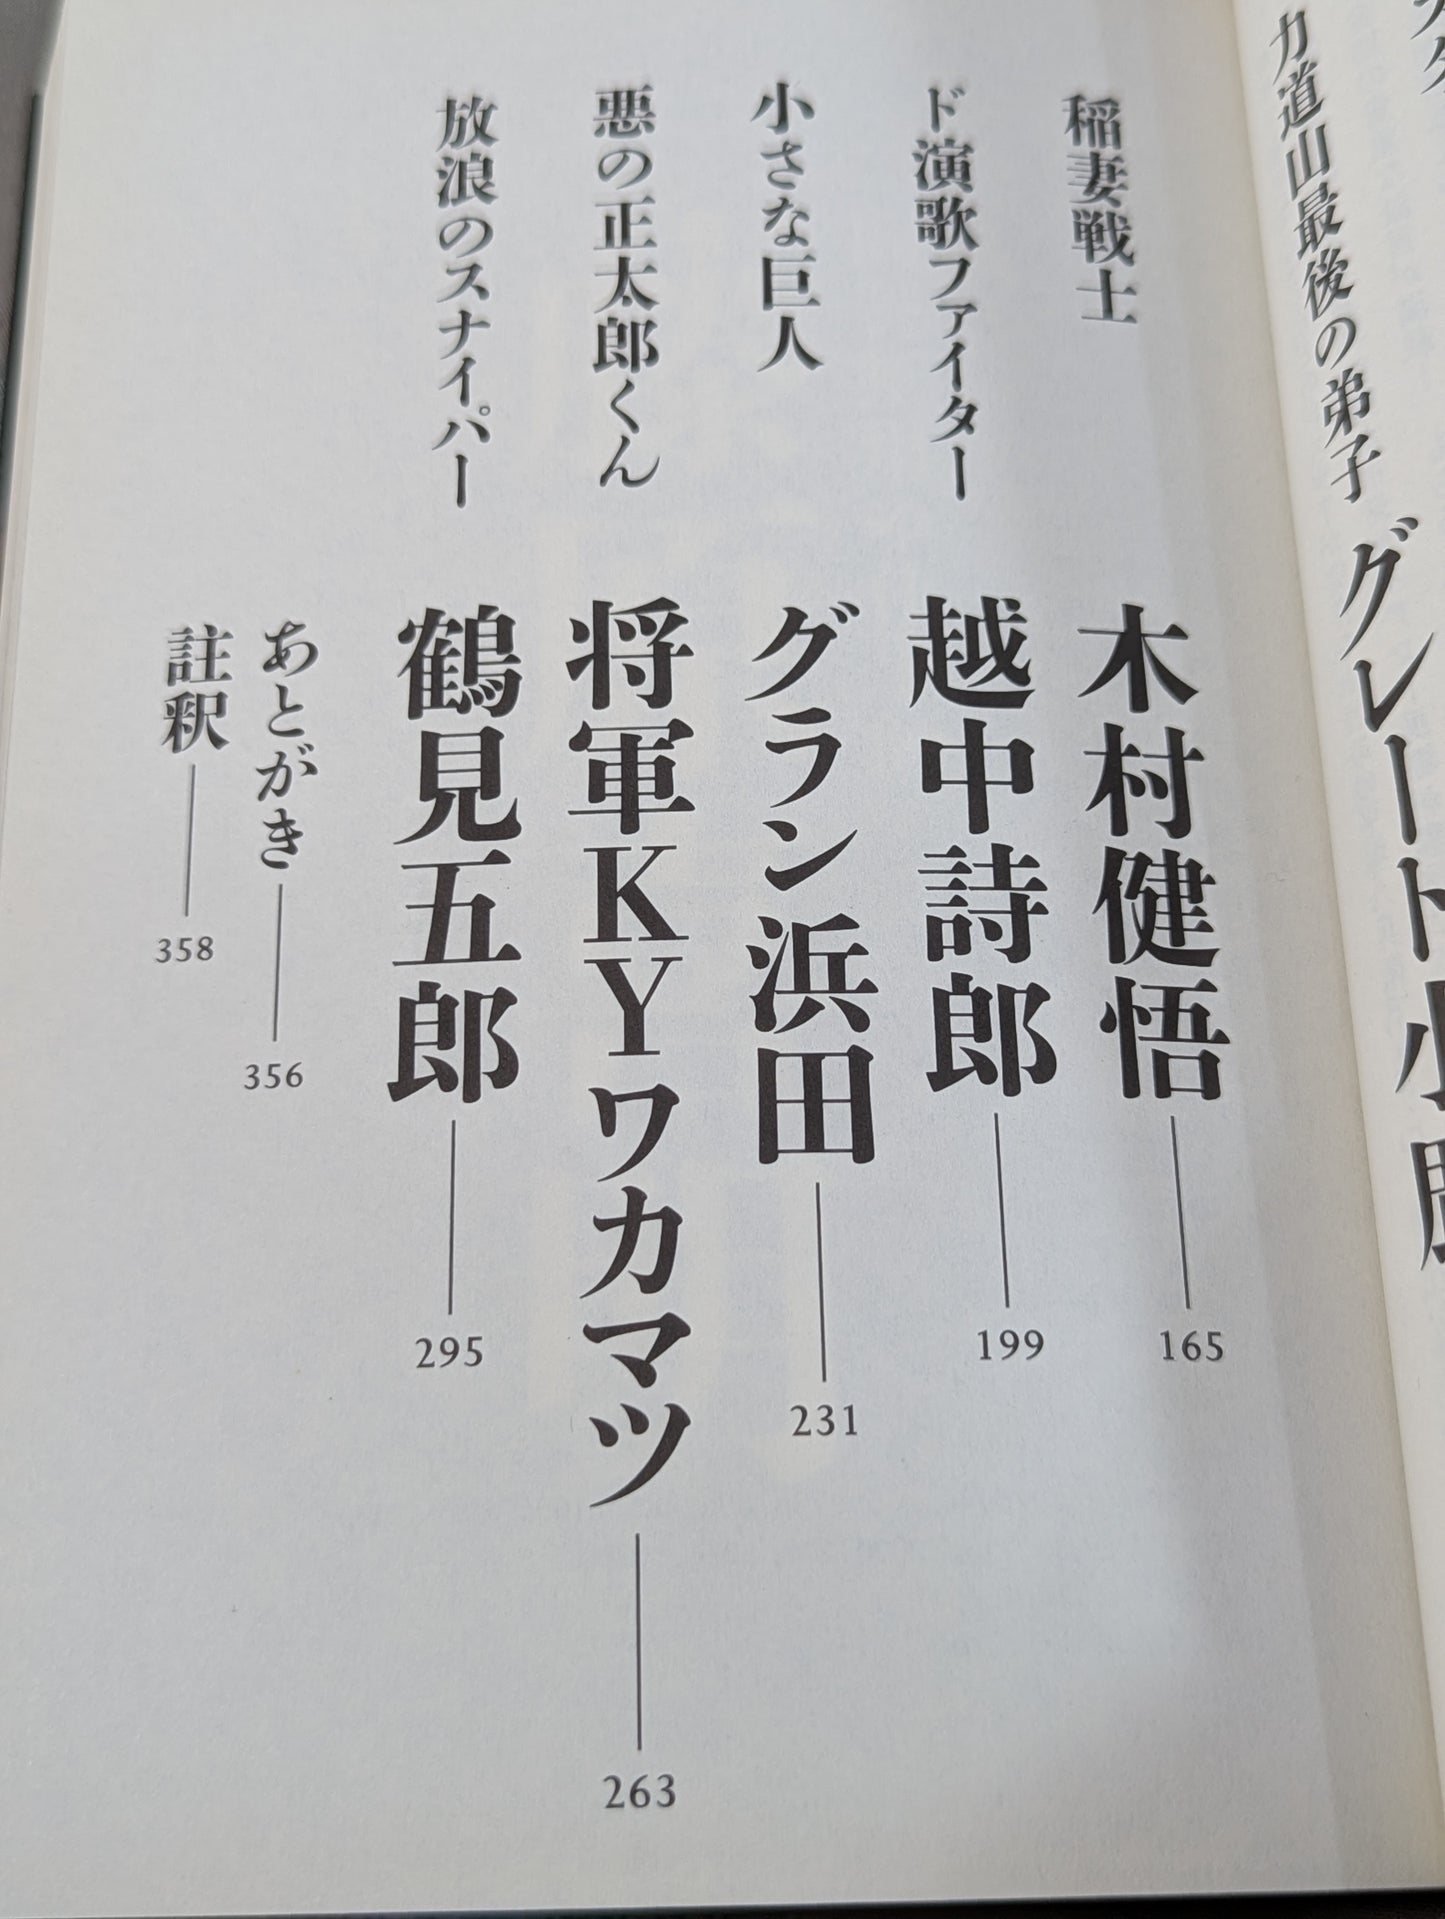 力道山最後の弟子 グレート小
稲妻戦士 木村健悟 165
ド演歌ファイター 越中詩郎 199
小さな巨人 グラン浜田 231
悪の正太郎くん 将軍KYワカマツ 263
放浪のスナイパー 鶴見五郎 295
あとがき 356
註釈 358